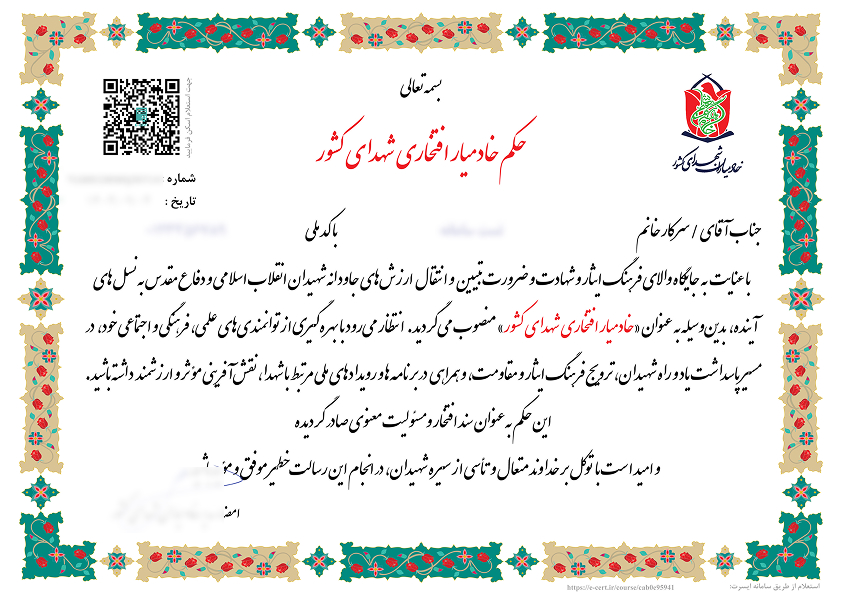 بسمه تعالی
جهت استعلام اسکن فرمایید
خادمیاران شهدای کشور
حکم خادمیار افتخاری شهدای کشور
شماره :
تاریخ :
جناب آقای / سرکار خانم با کد ملی
با عنایت به جایگاه والای فرهنگ ایثار و شهادت و ضرورت تبیین و انتقال ارزش‌های جاودانه شهیدان انقلاب اسلامی و دفاع مقدس به نسل‌های
آینده، بدین وسیله به عنوان «خادمیار افتخاری شهدای کشور» منصوب می‌گردید. انتظار می‌رود با بهره‌گیری از توانمندی‌های علمی، فرهنگی و اجتماعی خود، در
مسیر پاسداشت یاد و راه شهیدان، ترویج فرهنگ ایثار و مقاومت، و همراهی در برنامه‌ها و رویدادهای ملی مرتبط با شهدا، نقش‌آفرینی مؤثر و ارزشمند داشته باشید.
این حکم به عنوان سند افتخار و مسئولیت معنوی صادر گردیده
و امید است با توکل بر خداوند متعال و تأسی از سیره شهیدان، در انجام این رسالت خطیر موفق و
استعلام از طریق سامانه ایسرت: https://e-cert.ir/course/cab0e95941